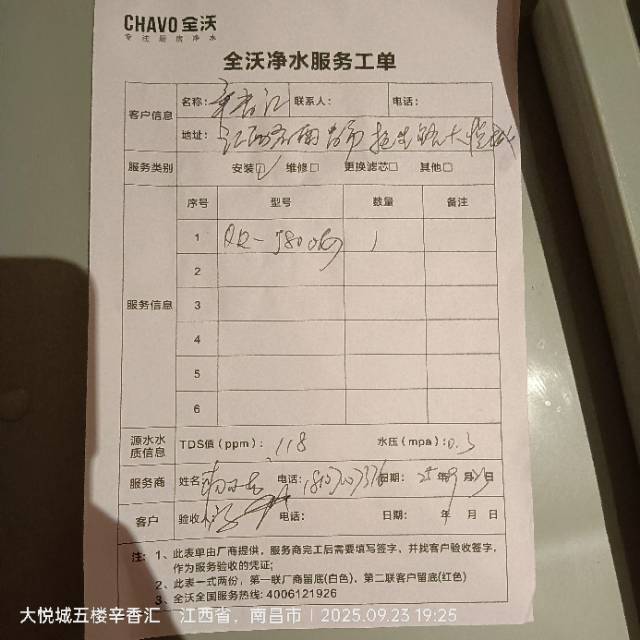 CHAVO 全沃
专注厨房净水
全沃净水服务工单
客户信息 名称: 辛香汇 联系人: 电话:
地址: 江西省南昌市
服务类别 安装☑ 维修□ 更换滤芯□ 其他□
服务信息 序号 型号 数量 备注
1 1
2
3
4
5
6
源水水质信息 TDS值(ppm): 118 水压(mpa): 0.3
服务商 姓名 电话: 日期: 25年9月23日
客户 验收 电话: 日期: 年 月 日
注: 1、此表单由厂商提供，服务商完工后需要填写签字、并找客户验收签字，
作为服务验收的凭证;
2、此表一式两份，第一联厂商留底(白色)、第二联客户留底(红色)
3、全沃全国服务热线: 4006121926
大悦城五楼辛香汇 江西省，南昌市 | 2025.09.23 19:25